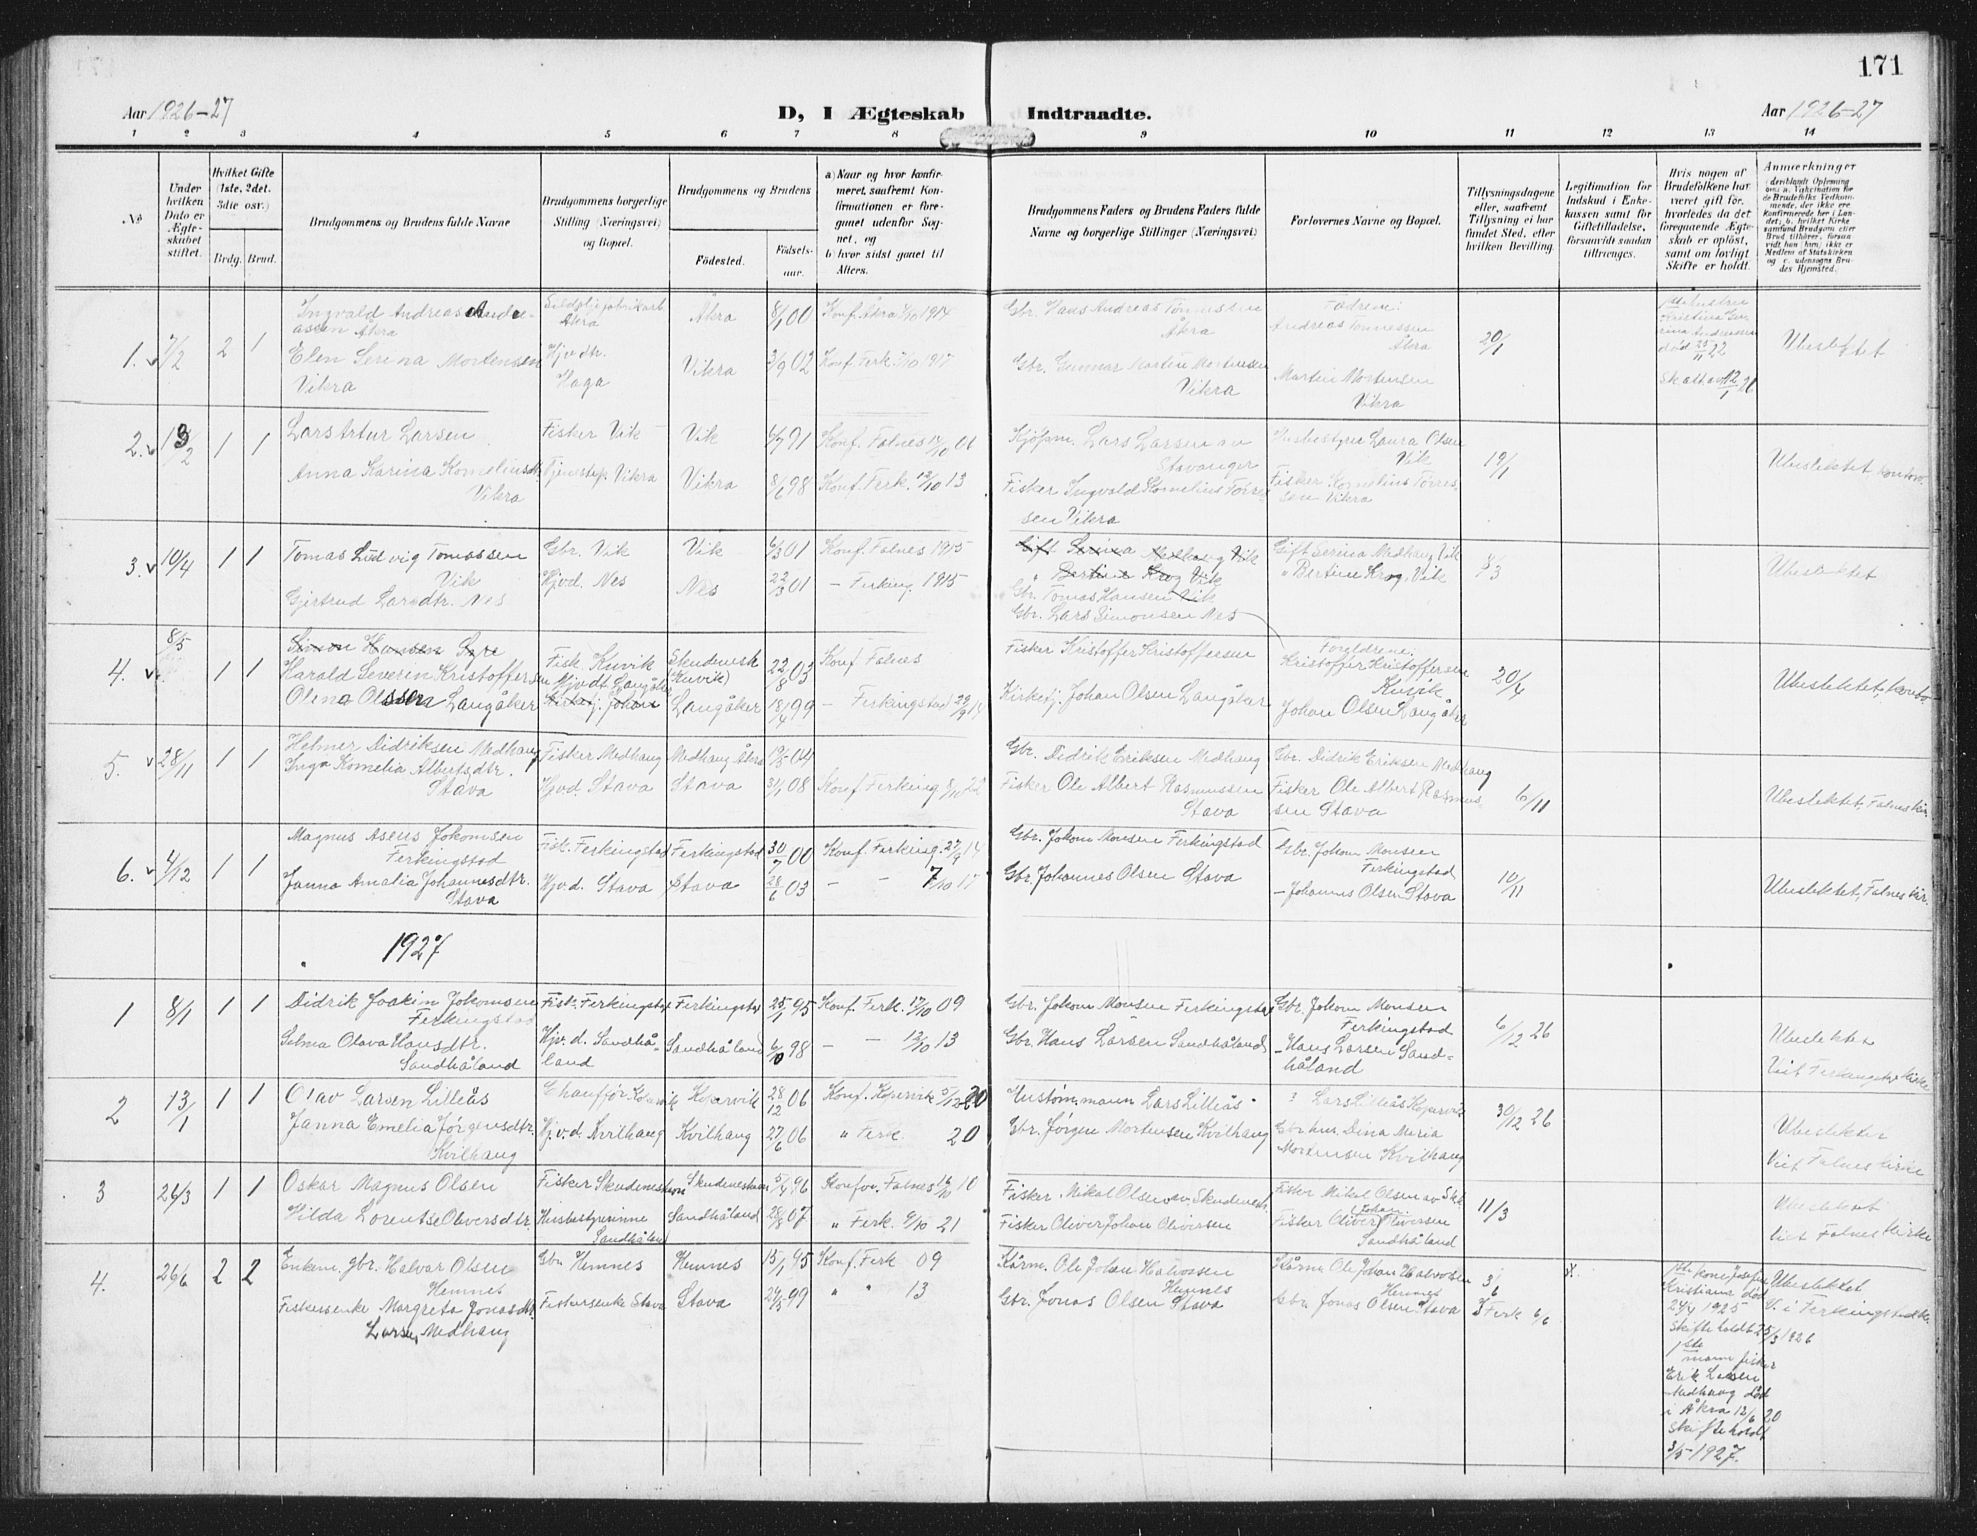 171
Aar 1926-27
D, I Ægteskab Indtraadte.
Aar 1926-27
1 2 3 4 5 6 7 8 9 10 11 12 13 14
No
Under hvilken Dato er Ægteskabet stiftet.
Hvilket Gifte (1ste, 2det. 3die osv.)
Brdg. Brud.
Brudgommens og Brudens fulde Navne
Brudgommens borgerlige Stilling (Næringsvei) og Bopæl.
Brudgommens og Brudens
Födested.
Födselsaar.
a) Naar og hvor konfirmeret, saafremt Konfirmationen er foregaaet udenfor Sognet, og
b) hvor sidst gaaet til Alters.
Brudgommens Faders og Brudens Faders fulde Navne og borgerlige Stillinger (Næringsvei)
Forlovernes Navne og Bopæl.
Tillysningsdagene eller, saafremt Tillysning ei har fundet Sted, efter hvilken Bevilling.
Legitimation for Indskud i Enkekassen samt for Giftetilladelse, forsaavidt saadan tiltrænges.
Hvis nogen af Brudefolkene har været gift før, hvorledes da det foregaaende Ægteskab er opløst, samt om lovligt Skifte er holdt.
Anmærkninger
1. 7/2 2 1
Ingvald Andreas Andreassen Åkra
Åkra
Åkra 8/1 00
Konf. Åkra 1914
Gbr. Hans Andreas Tönnessen Åkra
Fædrene:
Andreas Tönnessen Åkra
20/1
Ubeslektet
Elen Serina Mortensen Vikra
Hjv. dtr. Haga
Vikra 3/9 02
Konf. Ferk. 1917
Gbr. Gunnar Martin Mortensen Vikra
Martin Mortensen Vikra
2. 1 1
Lars Artur Larsen
Fisker Vik
Vik 6/7 91
Konf. Falnes
Lars Larsen
Stavanger
Laura Olsen Vik
19/1
Ubeslektet
Anna Karina Korneliusdt. Vikra
Tjenestep. Vikra
Vikra 8/6 98
Konf. Ferk. 12/10 13
Fisker Ingvald Kornelius Torressen Vikra
Fisker Kornelius Torressen Vikra
3. 10/4 1 1
Tomas Ludvig Tomassen Vik
Gbr. Vik
Vik 6/3 01
Konf. Falnes 1915
Gift Serina Medhaug Vik
" Bertine Krog Vik
Gbr. Tomas Hansen Vik
Gift Serina Medhaug Vik
" Bertine Krog, Vik
Ubeslektet
Gjertrud Larsdtr. Nes
Hjvd. Nes
Nes 22/3 01
- Ferking. 1915
Gbr. Lars Simonsen Nes
4. 8/5 1 1
Simon Hansen Syre
Harald Severin Kristoffersen
Fisk. Kuvik
Skudenesh (Kuvik) 22/8 03
Konf Falnes
Fisker Kristoffer Kristoffersen
Foreldrene:
Kristoffer Kristoffersen Kuvik
20/4
Ubeslektet
Olena Olssen Langåker
Hjvdt Langåker
Langåker 18/4 99
- Ferkingstad
Kirketj. Johan Olsen Langåker
Johan Olsen Langåker
5. 28/11 1 1
Helmer Didriksen Medhaug
Fisker Medhaug
Medhaug Åkra
Gbr. Didrik Eriksen Medhaug
Gbr. Didrik Eriksen Medhaug
6/11
Ubeslektet, Falnes kir.
Inga Kornelia Albertsdtr. Stava
Hjvd. Stava
Stava 3/1 08
Konf Ferking 8/10 22
Fisker Ole Albert Rasmussen Stava
Fisker Ole Albert Rasmussen Stava
6. 4/12 1 1
Magnus Asens Jokomsen Ferkingstad
Fisk. Ferkingstad
Ferkingstad 30/7 00
Konf. Ferking. 27/9 14
Gbr. Jokom Monsen Ferkingstad
Gbr. Jokom Monsen Ferkingstad
10/11
Ubeslektet, Falnes kir.
Janna Amalia Johannesdtr. Stava
Hjv.d. Stava
Stava 28/6 03
- - 7/10 17
Gbr. Johannes Olsen Stava
- Johannes Olsen Stava
1927
1 8/1 1 1
Didrik Joakim Jokomsen Ferkingstad
Fisk. Ferkingstad
Ferkingstad 25/1 95
Konf. Ferk. 17/10 09
Gbr. Jokom Monsen Ferkingstad
Gbr. Jokom Monsen Ferkingstad
6/12 26
Ubeslektet
Viet Ferkingstad kirke
Selma Olava Hansdtr. Sandhåland
Hjv. d. Sandhåland
Sandhåland 6/10 98
- - 12/10 13
Gbr. Hans Larsen Sandhåland
- Hans Larsen Sandhåland
2 13/1 1 1
Olav Larsen Lilleås
Chauffør Kopervik
Kopervik 28/12 06
Konf. Kopervik 5/12 20
Lars Lilleås
Lars Lilleås Kopervik
30/12 26
Ubeslektet
Viet Falnes kirke
Janna Emelia Jörgensdtr. Kvilhaug
Hjv. d. Kvilhaug
Kvilhaug 27/6 06
" Ferk. 20
Gbr. Jörgen Mortensen Kvilhaug
Dina Maria Mortensen Kvilhaug
3 26/3 1 1
Oskar Magnus Olsen
Fisker Skudeneshavn
Skudeneshavn 5/4 96
Konfor. Falnes
Fisker. Mikal Olsen av Skudenesh.
Fisker Mikal Olsen av Skh.
11/3
Ubeslektet
Viet Falnes kirke
Hilda Lorentse Oliversdtr.
Husbestyrerinne Sandhåland
Sandhåland 28/8 07
" Ferk. 9/10 21
Fisker Oliver Johan Oliversen
Fisker Oliver Johan Oliversen Sandhåland
4. 26/6 2 2
Enkem. gbr. Halvar Olsen Hemnes
Gbr. Hemnes
Hemnes 15/1 95
Konf. Ferk 09
Kårm. Ole Johan Halvorsen Hemnes
Kårm. Ole Johan Halvorsen Hemnes
Ferk 6/6
1ste kone Josefine Kristiane död 24/4 1925 Skifte holdt 25/3 1926
Ubeslektet
V. i Ferkingstad k.
Fiskersenke Margreta Jonasdtr. Larsen, Medhaug
Fiskersenke Stava
Stava 99
" " 13
Gbr. Jonas Olsen Stava
Gbr. Jonas Olsen Stava
1ste mann fisker Erik Larsen Medhaug död i Åkra 12/6 20 Skifte holdt 3/5-1927.